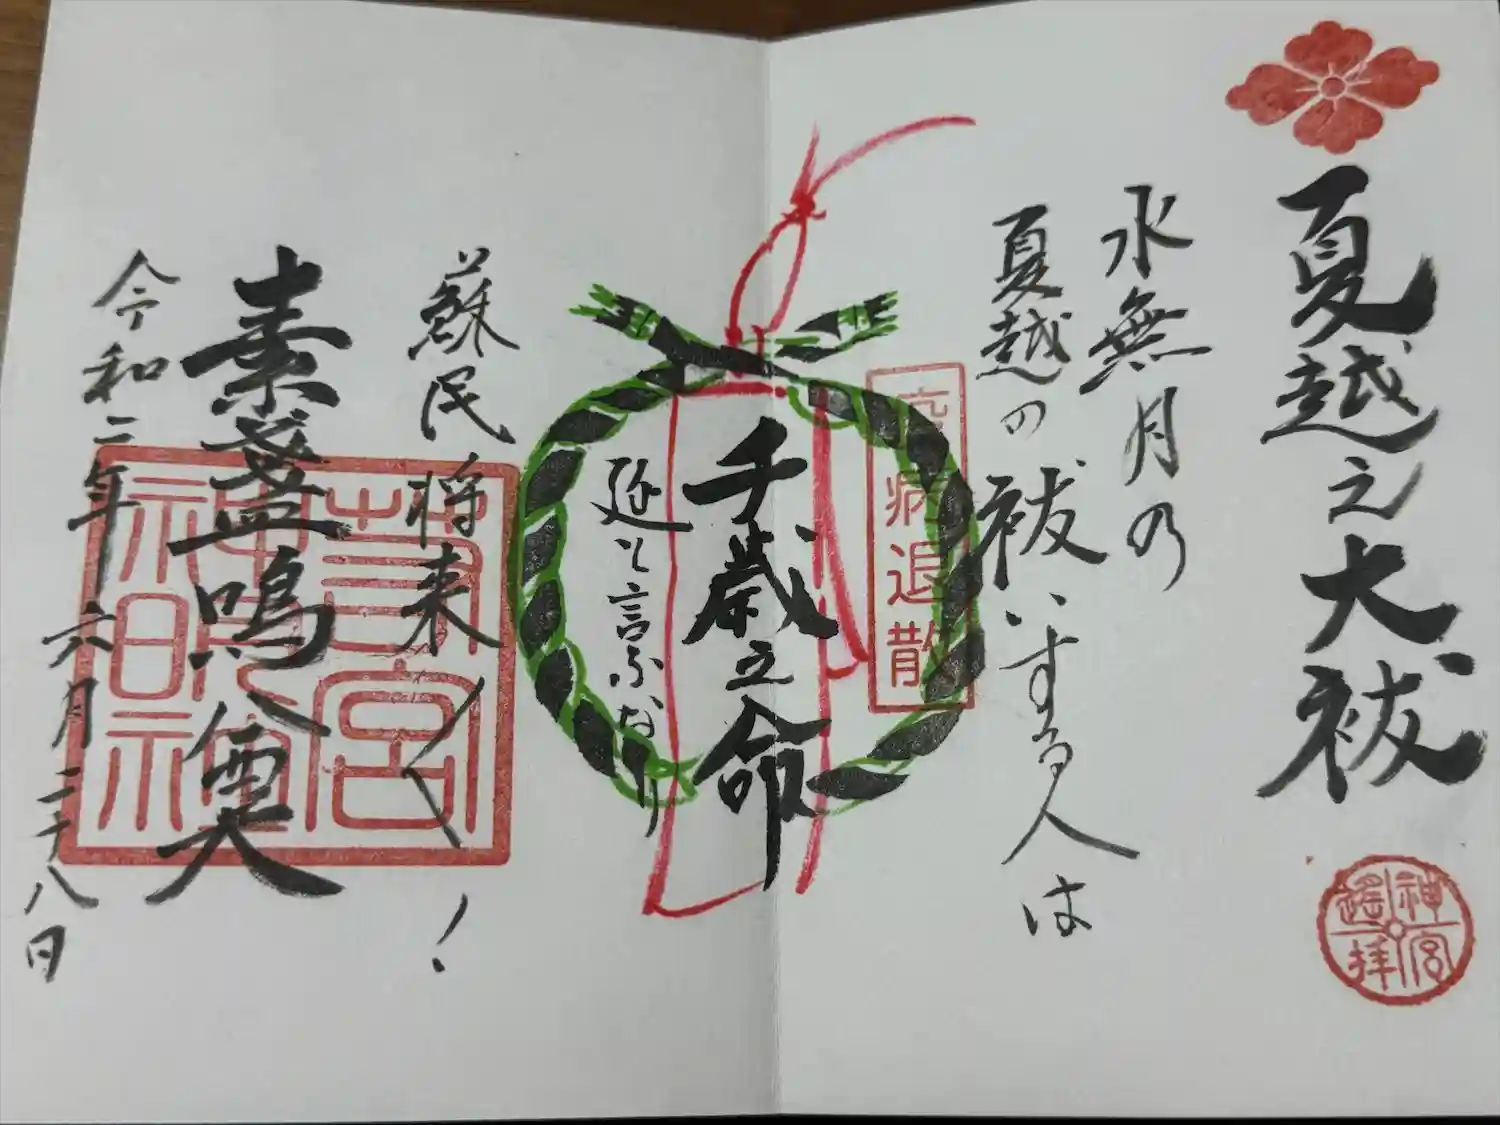 夏越之大祓
神宮
遙拝
水無月の
夏越の祓いする人は
疫病退散
千歳之命
延と言ふなり
蘇民将来〱!
素盞嗚尊
令和二年六月二十八日